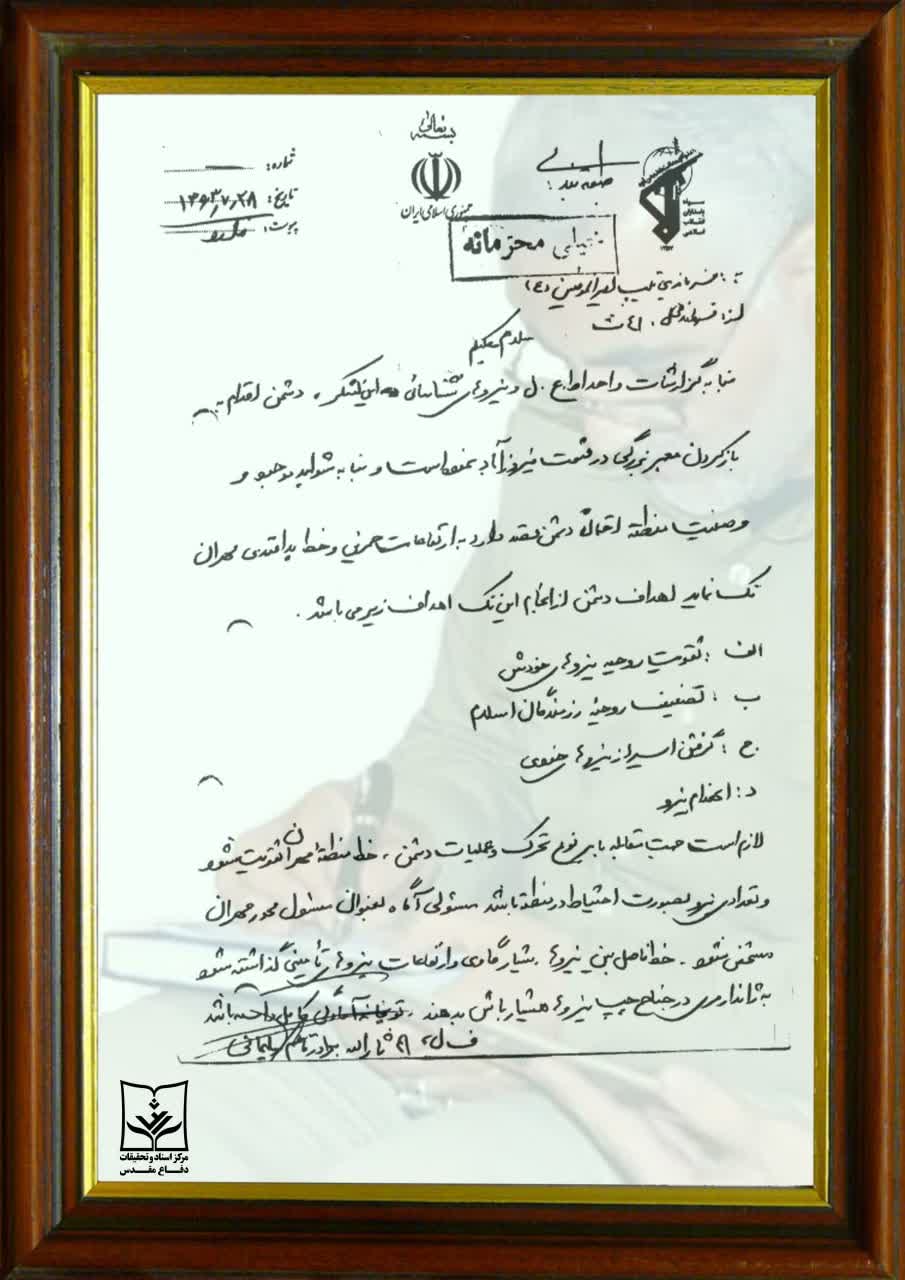 بسمه تعالی
جمهوری اسلامی ایران
شماره:
تاریخ: ۱۳۶۳/۷/۲۸
پیوست:
طبقه بندی:
سپاه پاسداران انقلاب اسلامی
خیلی محرمانه
به: فرماندهی تیپ امیرالمؤمنین (ع)
از: فرماندهی ل ۴۱ ث
سلام علیکم
بنا به گزارشات واحد اطلاع ل و نیروهای شناسائی این لشکر، دشمن اقدام به
باز کردن معبر بزرگی در قسمت فیروزآباد نموده است و بنا به شواهد موجود و
وضعیت منطقه احتمالا دشمن قصد دارد به ارتفاعات حمرین و خط پدافندی مهران
تک نماید اهداف دشمن از انجام این تک اهداف زیر می باشد.
الف: تقویت روحیه نیروهای خودش
ب: تضعیف روحیه رزمندگان اسلام
ج: گرفتن اسیر از نیروهای خودی
د: انهدام نیرو
لازم است جهت مقابله با هر نوع تحرک و عملیات دشمن، خط منطقه مهران تقویت شود
و تعدادی نیرو بصورت احتیاط در منطقه باشد مسئولی آگاه بعنوان مسئول محور مهران
مشخص شود. خط فاصل بین نیروها، شیار گاوی و ارتفاعات نیروهای تأمینی گذاشته شود
به ژاندارمری در جناح چپ نیروها هشیار باش بدهند. توپخانه آمادگی کامل داشته باشد
ف ل ۴۱ ثارالله برادر قاسم سلیمانی
مرکز اسناد و تحقیقات
دفاع مقدس